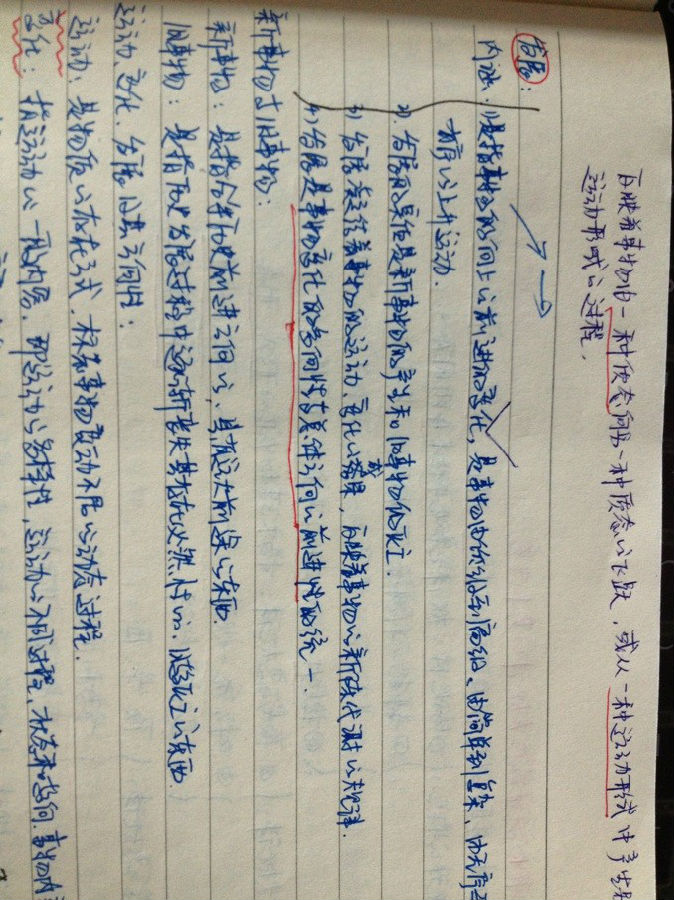 反映着事物由一种质态向另一种质态的飞跃，或从一种运动形式中产生另
运动形式的过程。
发展：
内涵：1)是指事物的向上的前进的变化，是事物由低级到高级、由简单到复杂、由无序至
有序的上升运动。
2) 发展的实质是新事物的产生和旧事物的灭亡。
3) 发展意味着事物的运动、变化的成果，反映着事物的新陈代谢的规律。
4) 发展是事物变化的方向性与总体方向的前进性的统一。
新事物与旧事物：
新事物：是指合乎历史前进方向的、具有远大前途的东西
旧事物：是指历史发展过程中逐渐丧失其存在必然性的、日趋灭亡的东西
运动、变化、发展及其方向性：
运动：是物质的存在形式，标志事物变动不居的动态过程。
变化：指运动的一般内容，即运动的多样性，运动的不同过程、状态和趋向。事物内